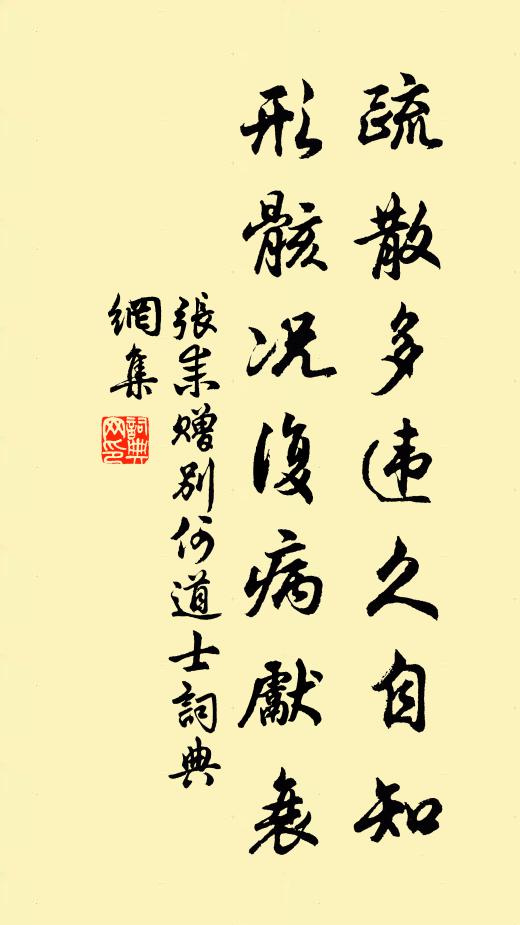 疏散多违久自知
形骸况復病獻衰
張耒赠别何道士詞典
網集
詞典
网印